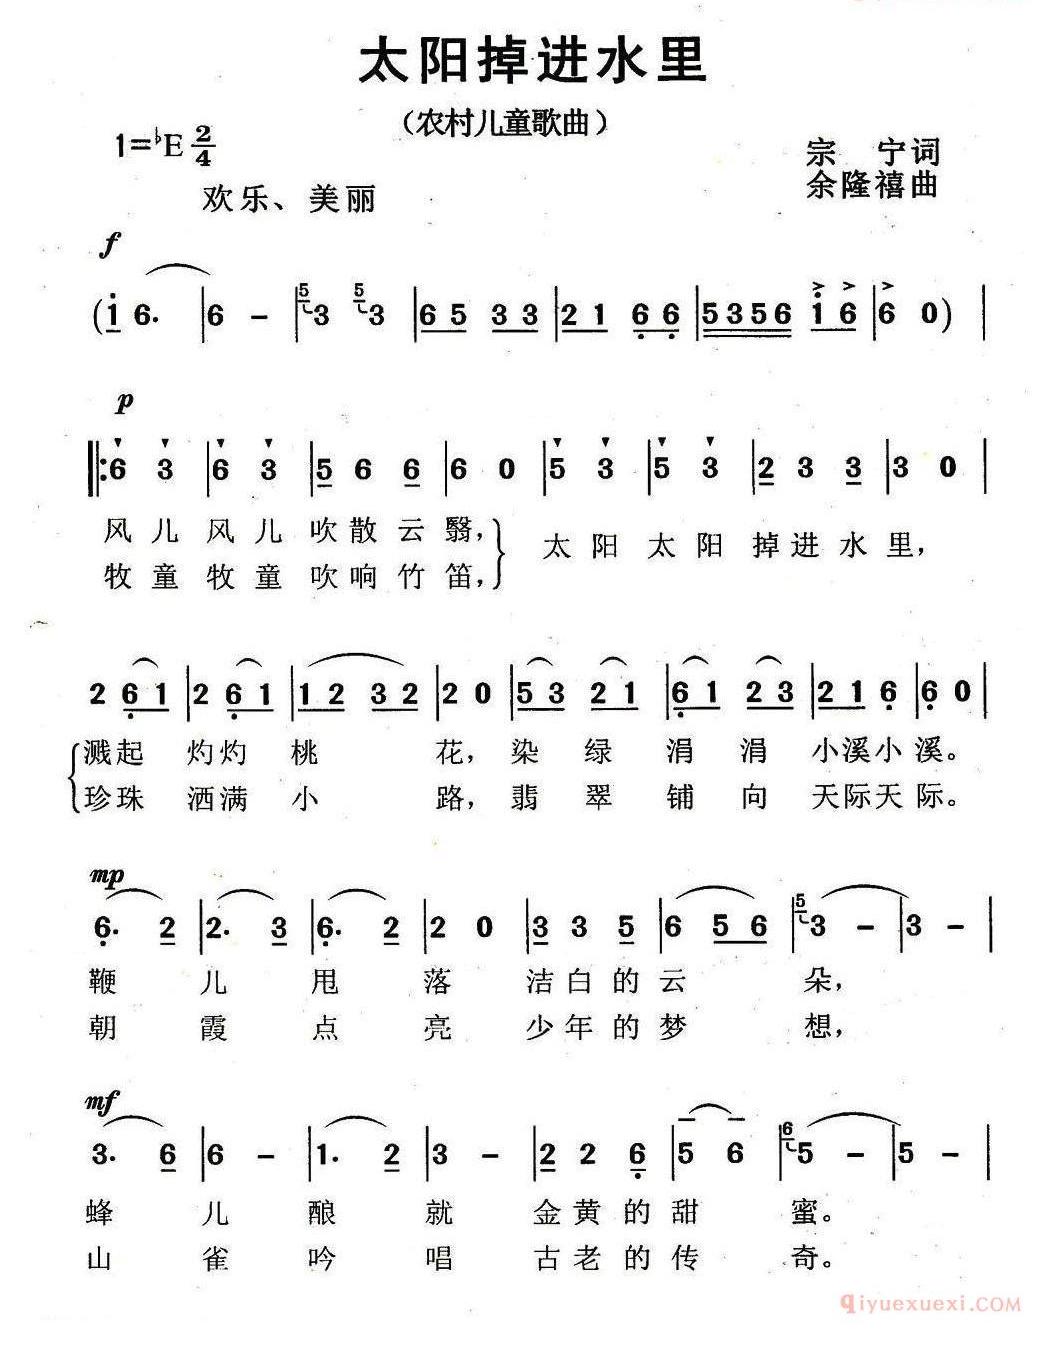 太阳掉进水里
（农村儿童歌曲）
1=♭E 2/4
宗 宁词
余隆禧曲
欢乐、美丽
f
(i 6. | 6 - | 5 3 5 3 | 6 5 3 3 | 2 1 6 6 | 5 3 5 6 i 6 | 6 0) |
p
‖: 6 3 | 6 3 | 5 6 6 | 6 0 | 5 3 | 5 3 | 2 3 3 | 3 0 |
风儿 风儿 吹散云翳， 太阳 太阳 掉进水里，
牧童 牧童 吹响竹笛，
2 6 1 | 2 6 1 | 1 2 3 2 | 2 0 | 5 3 2 1 | 6 1 2 3 | 2 1 6 | 6 0 |
溅起 灼灼 桃 花，染绿 涓涓 小溪小溪。
珍珠 洒满 小 路，翡翠 铺向 天际天际。
mp
6. 2 | 2. 3 | 6. 2 | 2 0 | 3 3 5 | 6 5 6 | 5 3 - | 3 - |
鞭 儿 甩 落 洁白的云 朵，
朝 霞 点 亮 少年的梦 想，
mf
3. 6 | 6 - | 1. 2 | 3 - | 2 2 6 | 5 6 | 6 5 - | 5 - |
蜂 儿 酿 就 金黄的甜 蜜。
山 雀 吟 唱 古老的传 奇。
qiyuexuexi.COM